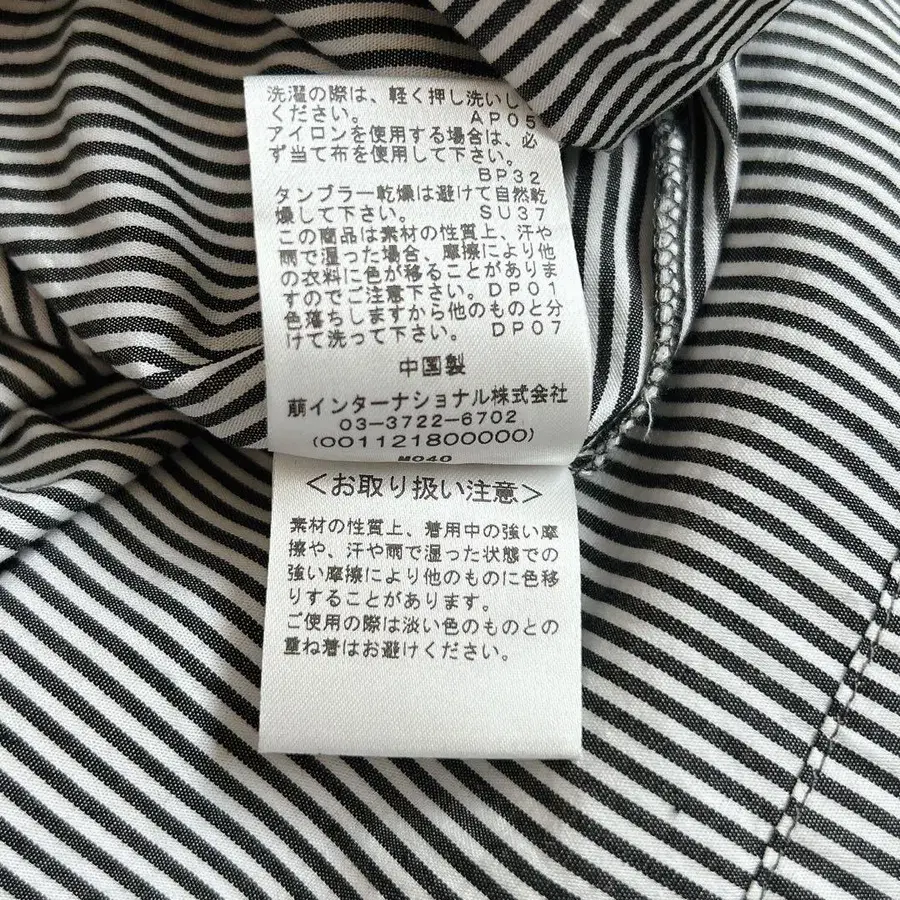 洗濯の際は、軽く押し洗いして
ください。 AP05
アイロンを使用する場合は、必
ず当て布を使用して下さい。
BP32
タンブラー乾燥は避けて自然乾
燥して下さい。 SU37
この商品は素材の性質上、汗や
雨で湿った場合、摩擦により他
の衣料に色が移ることがありま
すのでご注意下さい。DP01
色落ちしますから他のものと分
けて洗って下さい。 DP07
中国製
萠インターナショナル株式会社
03-3722-6702
(001121800000)
M040
<お取り扱い注意>
素材の性質上、着用中の強い摩
擦や、汗や雨で湿った状態での
強い摩擦により他のものに色移
りすることがあります。
ご使用の際は淡い色のものとの
重ね着はお避けください。